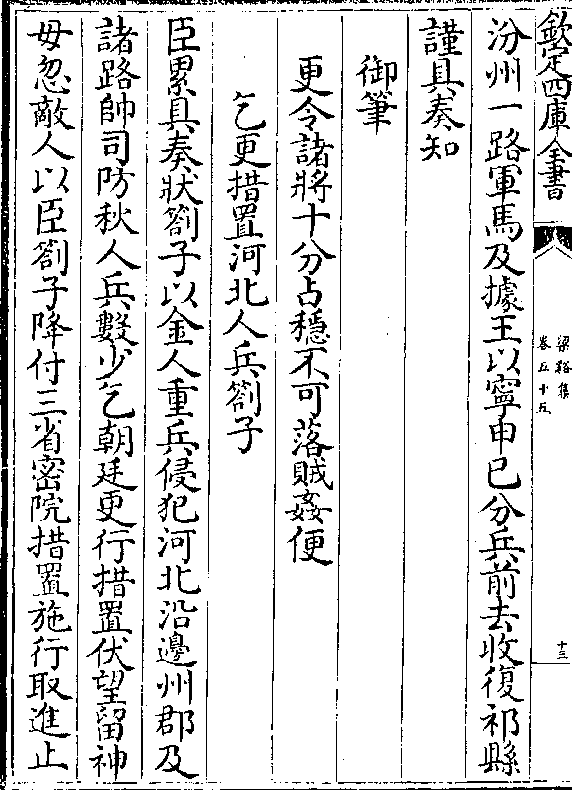 欽定四庫全書
梁谿集
卷五十五
十三
汾州一路軍馬及據王以寧申已分兵前去收復祁縣
謹具奏知
御筆
更令諸將十分占穩不可落賊姦便
乞更措置河北人兵劄子
臣累具奏狀劄子以金人重兵侵犯河北沿邊州郡及
諸路帥司防秋人兵數少乞朝廷更行措置伏望留神
毋忽敵人以臣劄子降付三省密院措置施行取進止